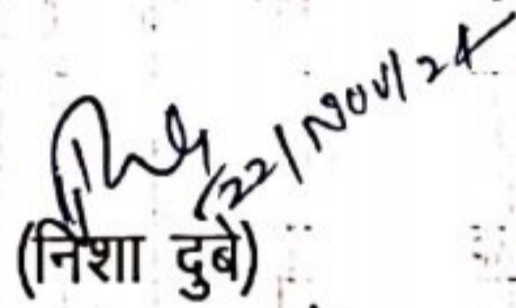 22/Nov/24
(निशा दुबे)